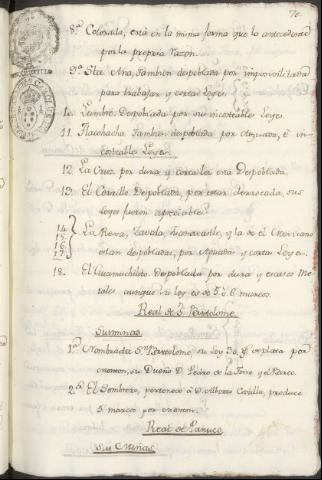 70.
8ª Colorada, está en la misma forma que la antecedente
por la propria razon.
9ª Sta. Ana, Tambien despoblada por imposivilitada
para trabajar y cortas Leyes.
10. Lembo. Despoblada por su incosteable Leyes.
11. Tambien despoblada por Aguada, è in-
costeables Leyes.
12. La Cruz por dura y corta ley esta Despoblada.
13. El Corrillo Despoblada, por estar derrocada, sus
Leyes fueron apreciables.
14. 15. 16. 17. La Reva, Tavola, y la de el Mexicano
estan despobladas, por Aguadas y cortas Leyes.
18. El Guamuchilito. Despoblada por dura y escasos Me-
tales aunque su ley és de 5 ó 6 marcos.
Real de S. Bartolome.
Sus minas.
1ª Nombrada Sn. Bartolome, su ley de plata por
monton, su Dueño D. Pedro de la Torre y el Banco.
2ª El Sombrero, pertenece á D. Alberto Cotilla, produce
5. marcos por monton.
Real de Panuco
Sus Minas.